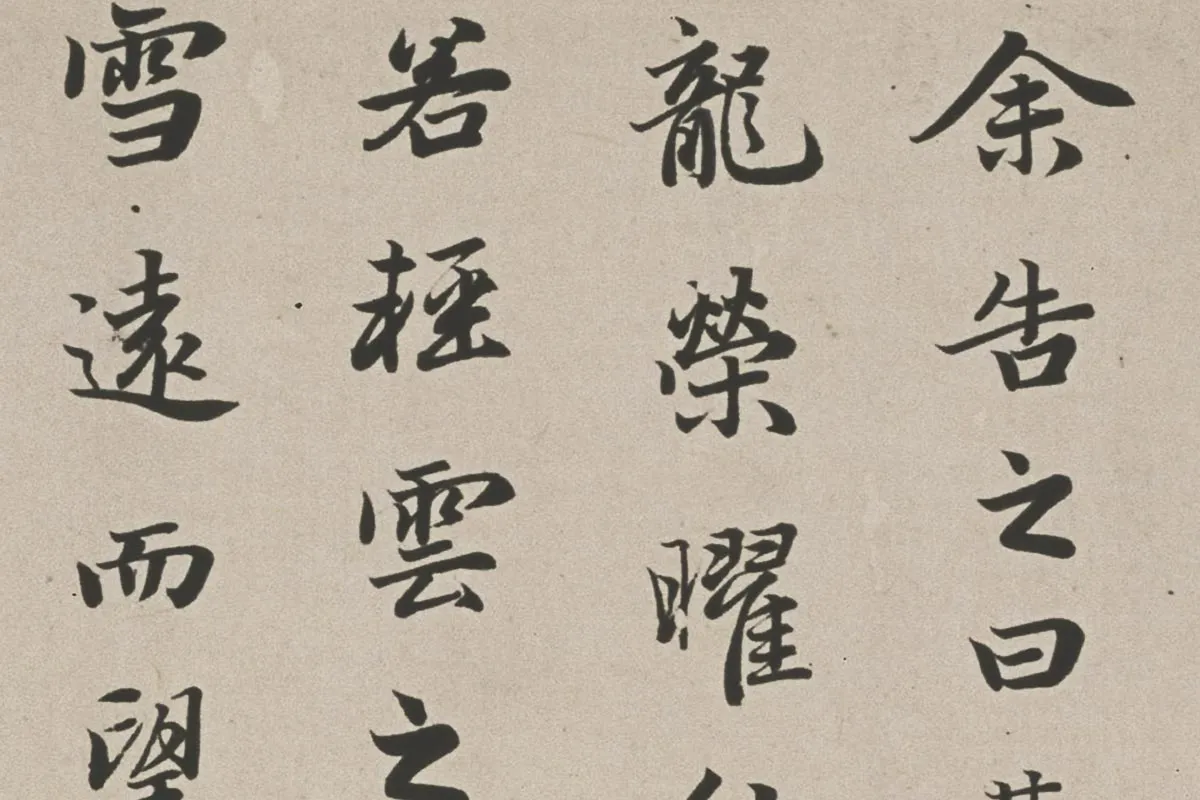 余告之曰
龍榮曜
若輕雲之
雪遠而望